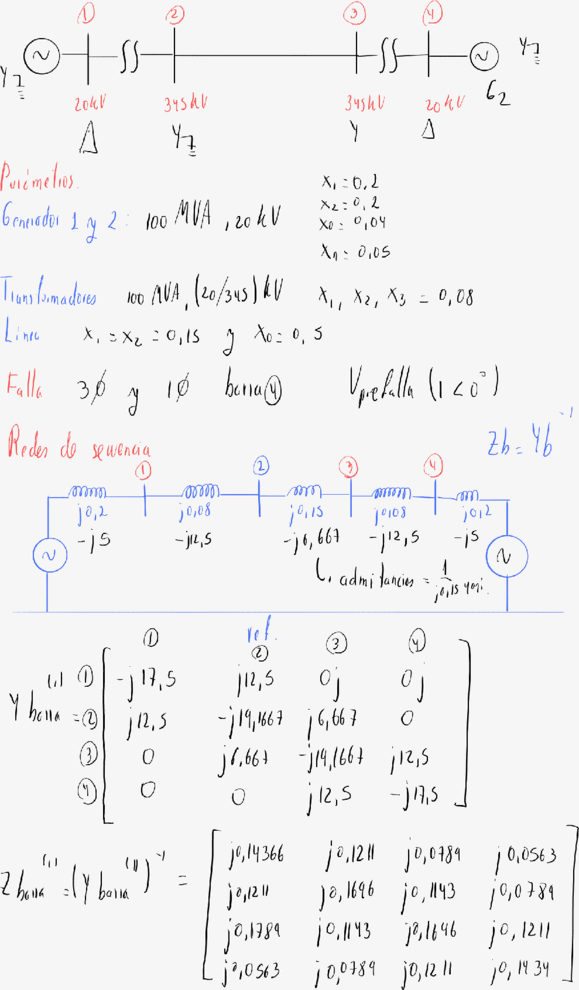 ① ② ③ ④
20kV 345kV 345kV 20kV G2
Δ Y Y Δ
Parámetros.
Generador 1 y 2: 100 MVA, 20 kV
x₁ = 0,2
x₂ = 0,2
x₀ = 0,04
xn = 0,05
Transformadores 100 MVA, (20/345) kV x₁, x₂, x₃ = 0,08
Linea x₁ = x₂ = 0,15 y x₀ = 0,5
Falla 3Ø y 1Ø barra ④ Vprefalla (1<0°)
Redes de secuencia Zb = Yb⁻¹
① ② ③ ④
j0,2 j0,08 j0,15 j0,08 j0,2
-j5 -j12,5 -j6,667 -j12,5 -j5
admitancias = 1/j0,15
ref.
① ② ③ ④
① -j17,5 j12,5 0j 0j
Y barra⁽¹⁾ = ② j12,5 -j19,1667 j6,667 0
③ 0 j6,667 -j19,1667 j12,5
④ 0 0 j12,5 -j17,5
j0,14366 j0,1211 j0,0789 j0,0563
Z barra⁽¹⁾ = (Y barra⁽¹⁾)⁻¹ = j0,1211 j0,1646 j0,1143 j0,0789
j0,1789 j0,1143 j0,1646 j0,1211
j0,0563 j0,0789 j0,1211 j0,1434